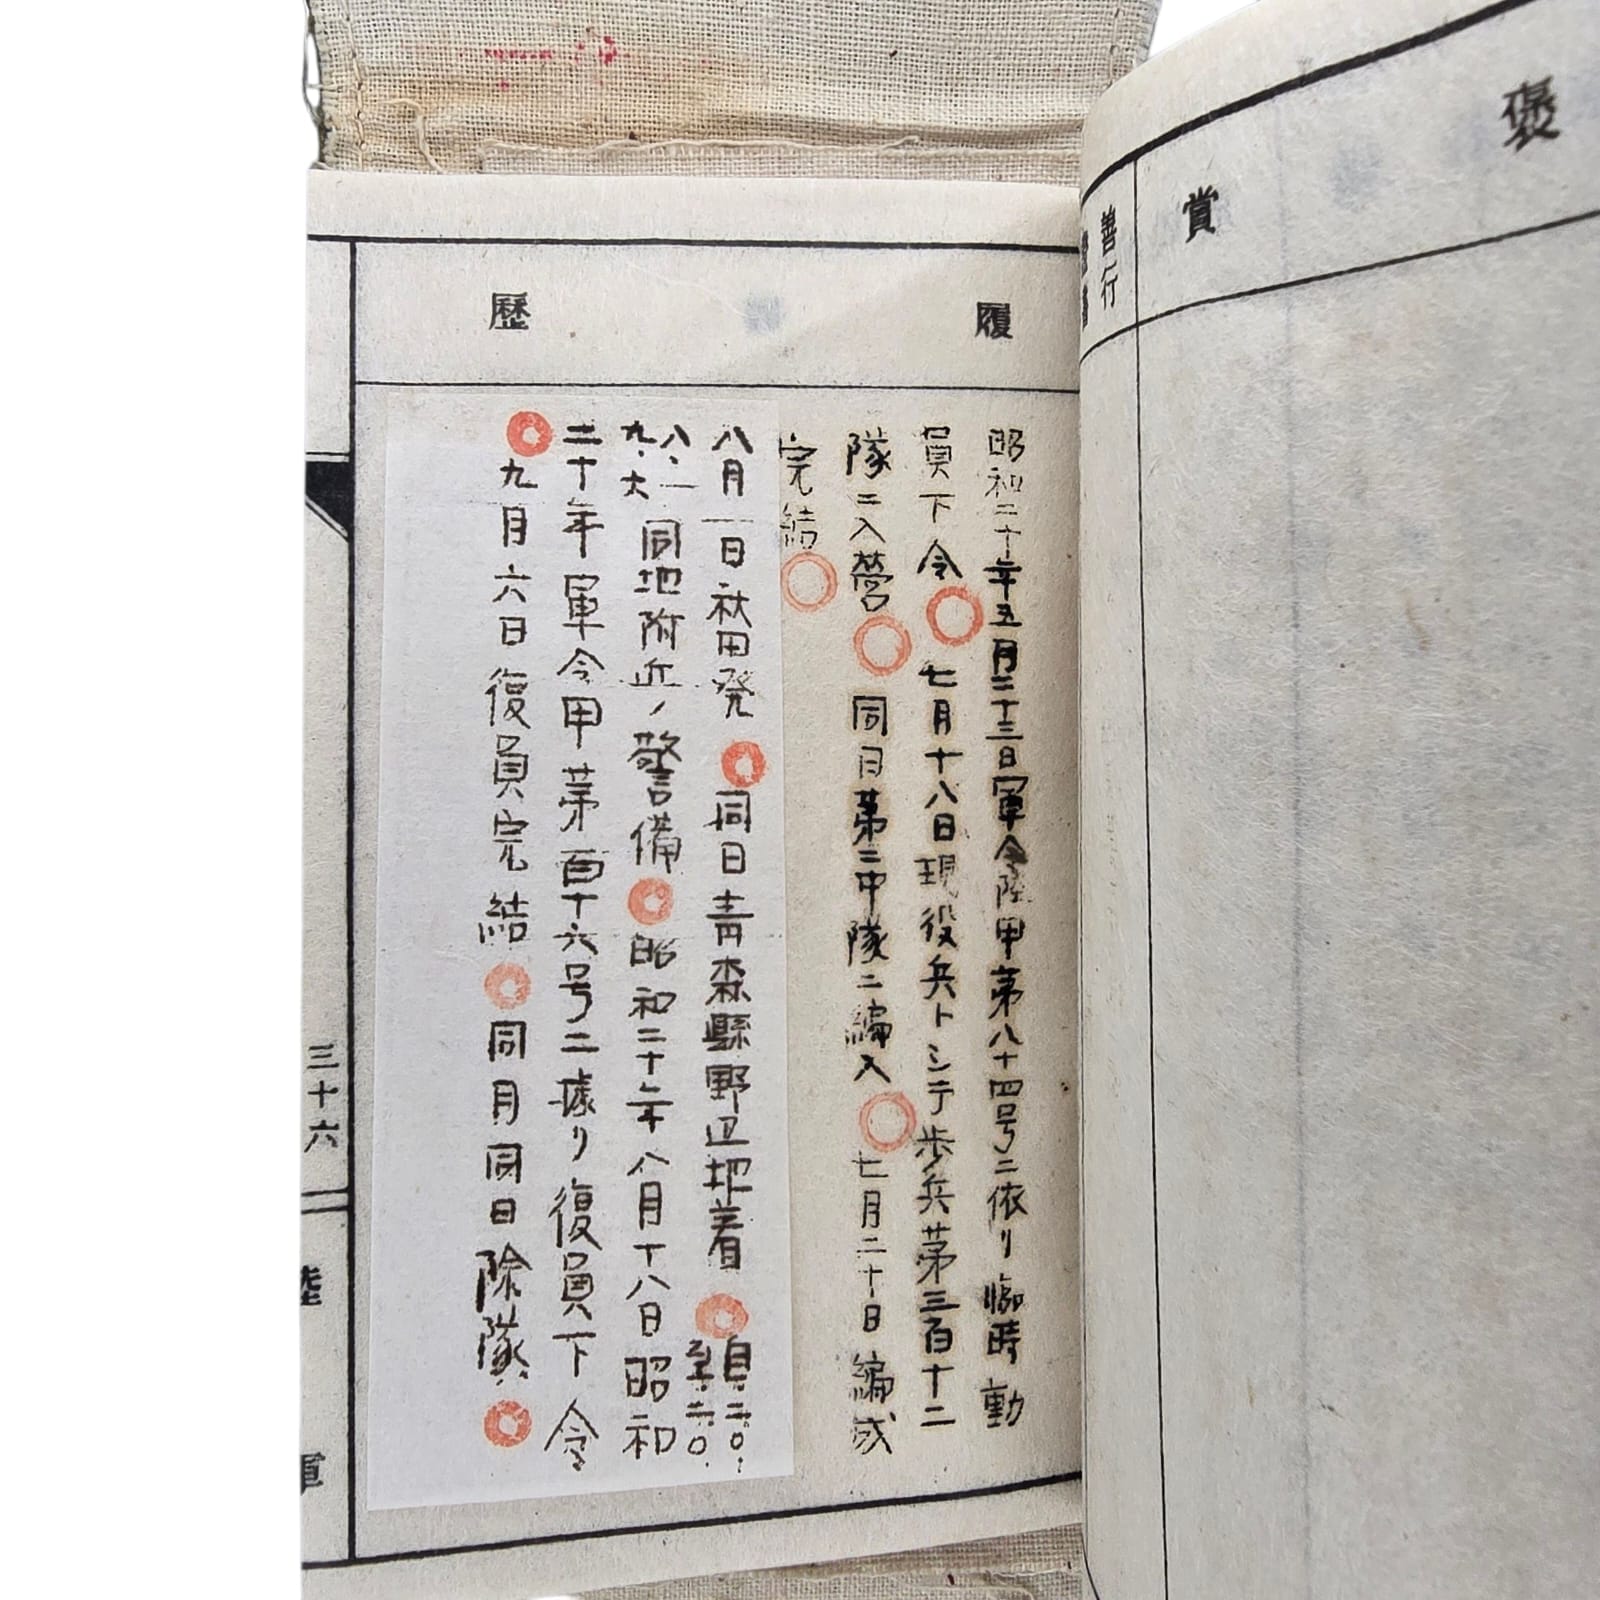 褒
賞
善行
履
歴
昭和二十年五月二十三日軍令陸甲第八十四号ニ依リ臨時動
員下令
七月十八日現役兵トシテ歩兵第三百十二
隊ニ入営
同日第二中隊ニ編入
七月二十日編成
完結
八月一日秋田発
同日青森縣野辺地着
自二〇、
至二〇、
八、一
九、六
同地附近ノ警備
昭和二十年八月十八日昭和
二十年軍令甲第百十六号ニ據リ復員下令
九月六日復員完結
同月同日除隊
三十六
陸
軍